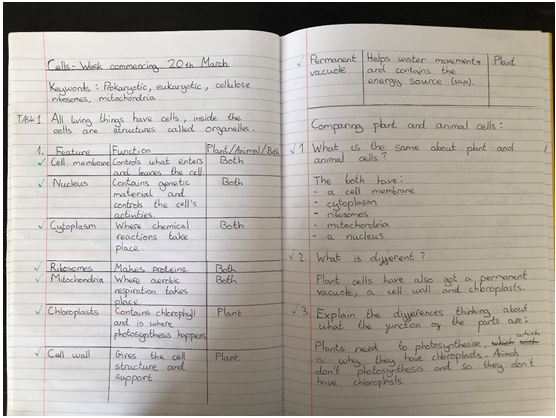 Cells - Week commencing 20th March
Keywords : Prokaryotic, eukaryotic, cellulose
ribosomes, mitochondria
TASK 1 All living things have cells, inside the
cells are structures called organelles.
1. Feature Function Plant/Animal/Both
Cell membrane Controls what enters Both
and leaves the cell
Nucleus Contains genetic Both
material and
controls the cell's
activities.
Cytoplasm Where chemical Both
reactions take
place.
Ribosomes Makes proteins. Both
Mitochondria Where aerobic Both
respiration takes
place
Chloroplasts Contains chlorophyll Plant
and is where
photosynthesis happens
Cell wall Gives the cell Plant
structure and
support
Permanent Helps water movement Plant
vacuole and contains the
energy source (sap).
Comparing plant and animal cells:
1. What is the same about plant and
animal cells?
The both have:
- a cell membrane
- cytoplasm
- ribosomes
- mitochondria
- a nucleus
2. What is different?
Plant cells have also got a permanent
vacuole, a cell wall and chloroplasts.
3. Explain the differences thinking about
what the function of the parts are:
Plants need to photosynthesise, which
is why they have chloroplasts. Animals
don't photosynthesis and so they don't
have chloroplasts.